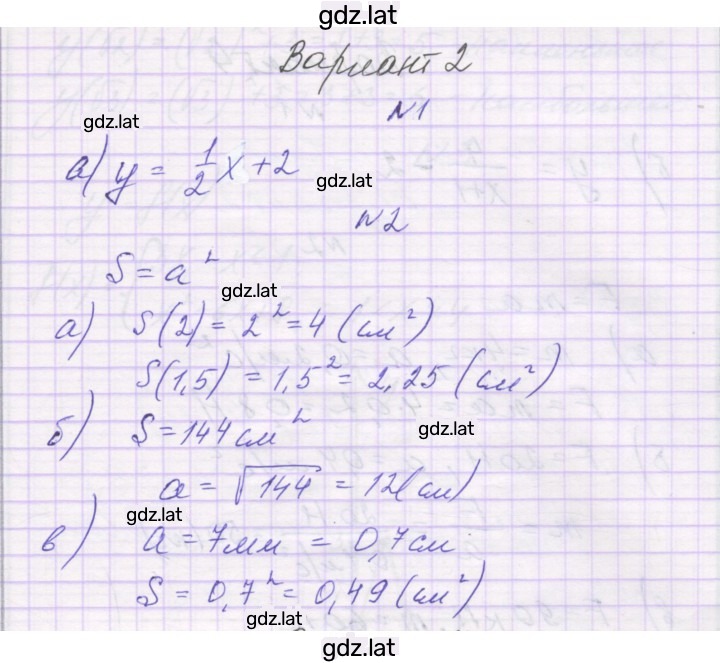 gdz.lat
Вариант 2
gdz.lat
N1
а) y = 1/2 x + 2
gdz.lat
N2
S = a²
gdz.lat
а) S(2) = 2² = 4 (см²)
S(1,5) = 1,5² = 2,25 (см²)
б) S = 144 см²
gdz.lat
a = √144 = 12(см)
gdz.lat
в) a = 7мм = 0,7см
S = 0,7² = 0,49 (см²)
gdz.lat
gdz.lat